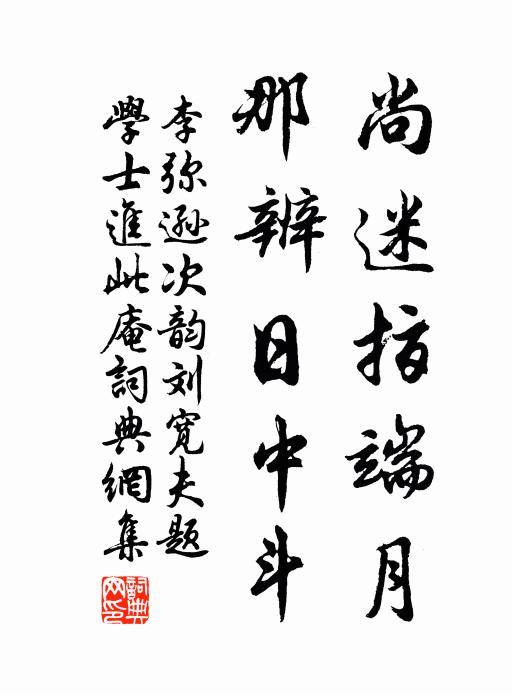 尚迷指端月
那辨日中斗
李弥逊次韵刘宽夫题
學士進此庵詞典網集
詞典网印